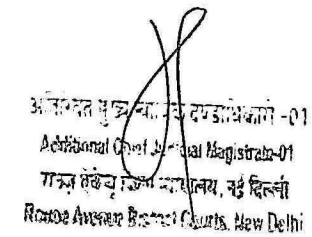 अतिरिक्त मुख्य न्यायिक दण्डाधिकारी -01
Additional Chief Judicial Magistrate-01
राऊज एवेन्यू जिला न्यायालय, नई दिल्ली
Rouse Avenue District Courts, New Delhi